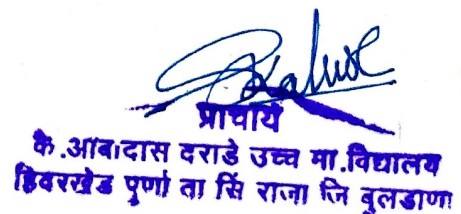 प्राचार्य
कै.आबादास दराडे उच्च मा.विद्यालय
हिवरखेड पुर्णा ता सिं राजा जि बुलडाणा